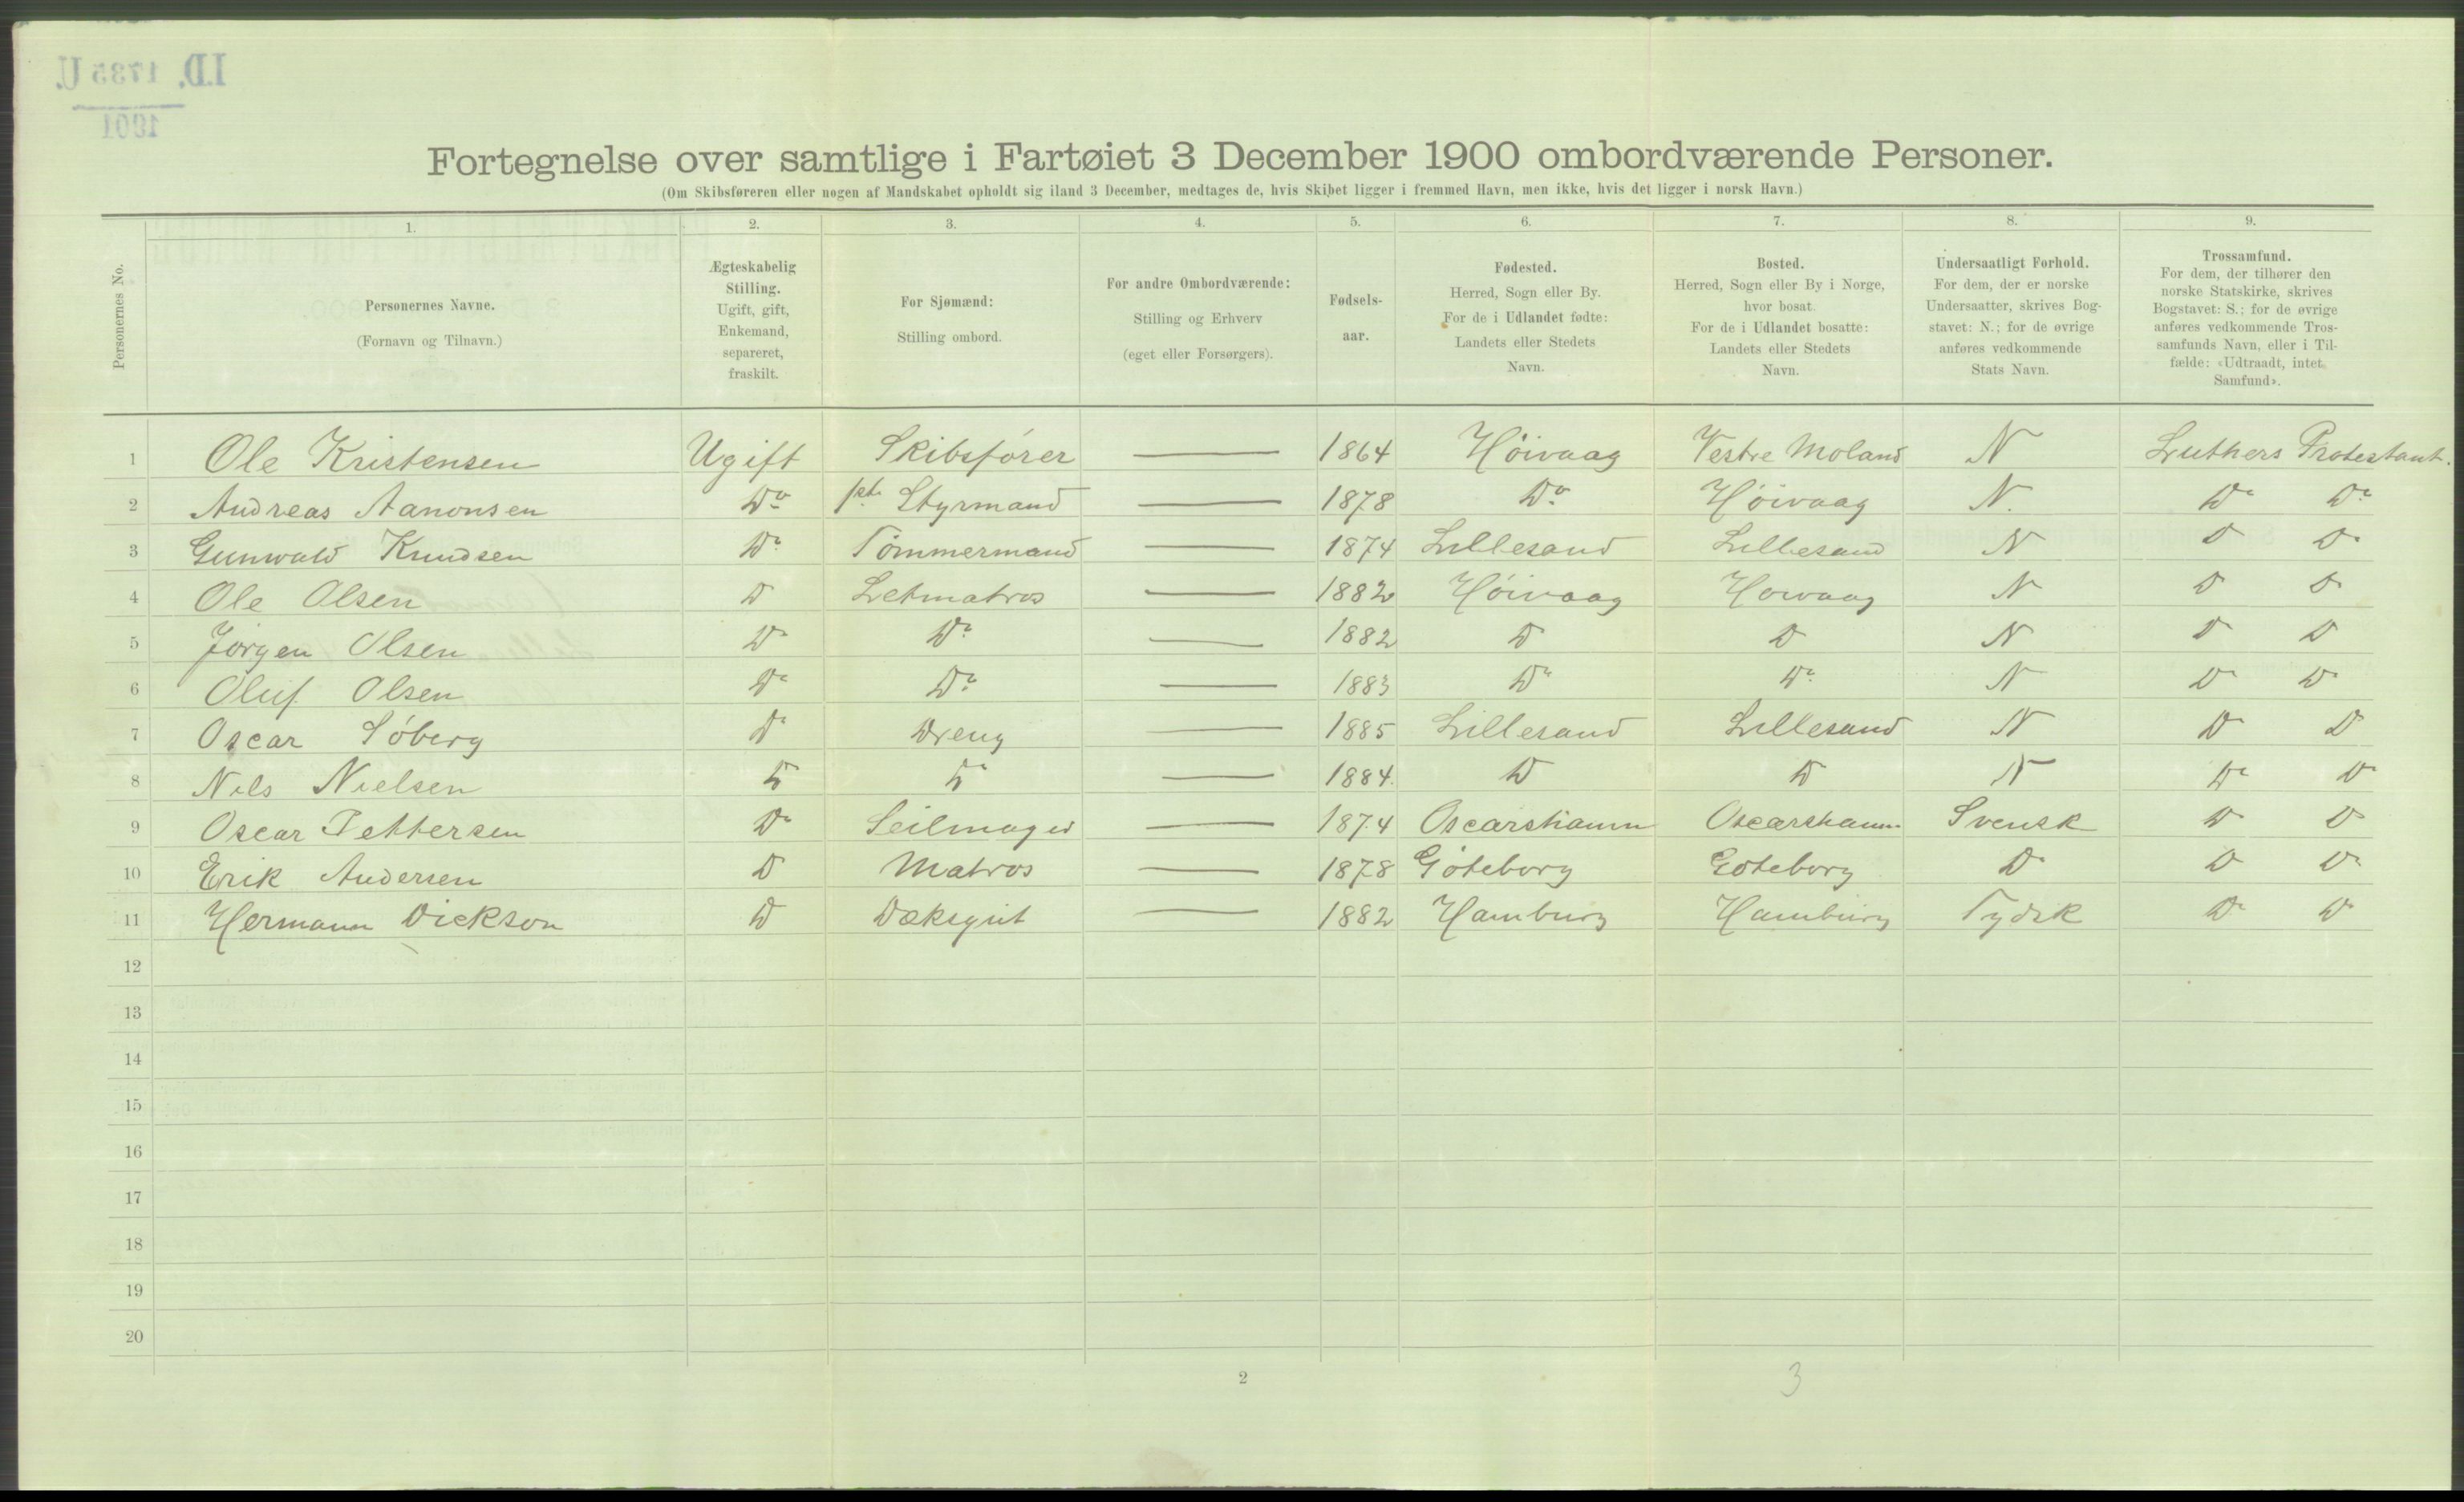 I.D. 1735 U.
1901
Fortegnelse over samtlige i Fartøiet 3 December 1900 ombordværende Personer.
(Om Skibsføreren eller nogen af Mandskabet opholdt sig iland 3 December, medtages de, hvis Skibet ligger i fremmed Havn, men ikke, hvis det ligger i norsk Havn.)
Personernes No.
1. 2. 3. 4. 5. 6. 7. 8. 9.
Personernes Navne.
(Fornavn og Tilnavn.)
Ægteskabelig
Stilling.
Ugift, gift,
Enkemand,
separeret,
fraskilt.
For Sjømænd:
Stilling ombord.
For andre Ombordværende:
Stilling og Erhverv
(eget eller Forsørgers).
Fødsels-
aar.
Fødested.
Herred, Sogn eller By.
For de i Udlandet fødte:
Landets eller Stedets
Navn.
Bosted.
Herred, Sogn eller By i Norge,
hvor bosat.
For de i Udlandet bosatte:
Landets eller Stedets
Navn.
Undersaatligt Forhold.
For dem, der er norske
Undersaatter, skrives Bog-
stavet: N.; for de øvrige
anføres vedkommende
Stats Navn.
Trossamfund.
For dem, der tilhører den
norske Statskirke, skrives
Bogstavet: S.; for de øvrige
anføres vedkommende Tros-
samfunds Navn, eller i Til-
fælde: «Udtraadt, intet
Samfund».
1 Ole Kristensen Ugift Skibsfører — 1864 Höivaag Vestre Moland N Luthers Protestant.
2 Andreas Aanonsen Do 1st Styrmand — 1878 Do Höivaag N. Do Do
3 Gunwald Knudsen Do Tömmermand — 1874 Lillesand Lillesand N D Do
4 Ole Olsen D Letmatros — 1882 Höivaag Hoivaag N D D
5 Jörgen Olsen Do Do — 1882 D D N D D
6 Oluf Olsen Do Do — 1883 Do Do N Do Do
7 Oscar Söberg Do Dreng — 1885 Lillesand Lillesand N D D
8 Nils Nielsen D Do — 1884. D D N Do Do
9 Oscar Pettersen Do Seilmager — 1874 Oscarshamn Oscarshamn Svensk D D
10 Erik Andersen D Matros — 1878 Göteborg Goteborg D D Do
11 Hermann Dickson D Dæksgut — 1882 Hamburg Hamburg Tydsk Do Do
12
13
14
15
16
17
18
19
20
2 3